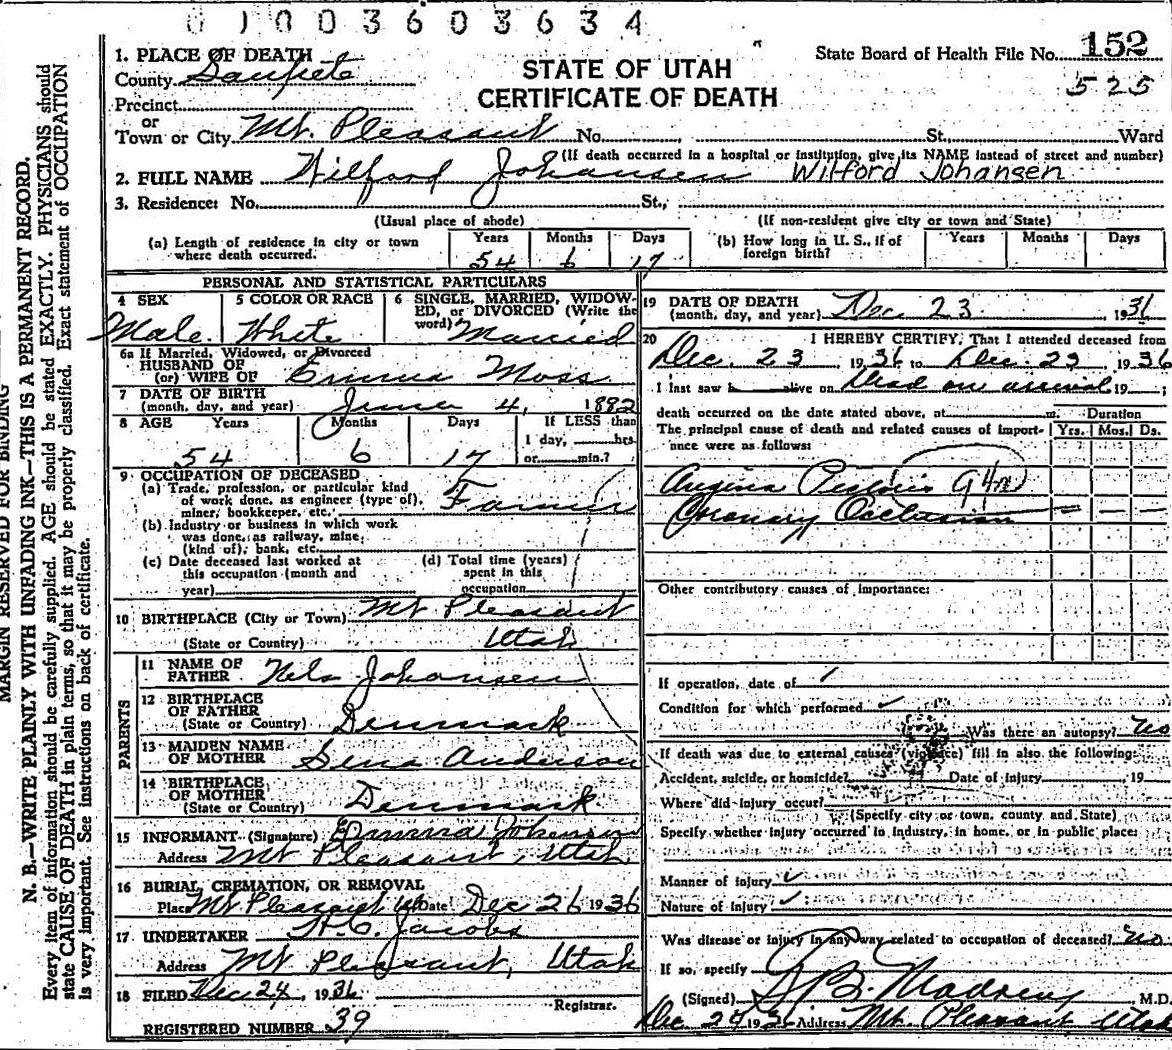 0 1 0 0 3 6 0 3 6 3 4
MARGIN RESERVED FOR BINDING
N. B.—WRITE PLAINLY WITH UNFADING INK—THIS IS A PERMANENT RECORD.
Every item of information should be carefully supplied. AGE should be stated EXACTLY. PHYSICIANS should
state CAUSE OF DEATH in plain terms, so that it may be properly classified. Exact statement of OCCUPATION
is very important. See instructions on back of certificate.
State Board of Health File No. 152
525
STATE OF UTAH
CERTIFICATE OF DEATH
1. PLACE OF DEATH
County Sanpete
Precinct
or
Town or City Mt. Pleasant No. St. Ward
(If death occurred in a hospital or institution, give its NAME instead of street and number)
2. FULL NAME Wilford Johansen Wilford Johansen
3. Residence: No. St.,
(Usual place of abode) (If non-resident give city or town and State)
(a) Length of residence in city or town where death occurred. Years 54 Months 6 Days 17
(b) How long in U. S., if of foreign birth? Years Months Days
PERSONAL AND STATISTICAL PARTICULARS
4 SEX Male
5 COLOR OR RACE White
6 SINGLE, MARRIED, WIDOWED, or DIVORCED (Write the word) Married
6a If Married, Widowed, or Divorced
HUSBAND OF
(or) WIFE OF Emma Moss
7 DATE OF BIRTH
(month, day, and year) June 4, 1882
8 AGE Years Months Days If LESS than
54 6 17 1 day, hrs.
or min.?
9 OCCUPATION OF DECEASED
(a) Trade, profession, or particular kind
of work done, as engineer (type of),
miner, bookkeeper, etc. Farmer
(b) Industry or business in which work
was done, as railway, mine,
(kind of), bank, etc.
(c) Date deceased last worked at
this occupation (month and
year)
(d) Total time (years)
spent in this
occupation
10 BIRTHPLACE (City or Town) Mt Pleasant
(State or Country) Utah
PARENTS
11 NAME OF
FATHER Nels Johansen
12 BIRTHPLACE
OF FATHER
(State or Country) Denmark
13 MAIDEN NAME
OF MOTHER Sena Anderson
14 BIRTHPLACE
OF MOTHER
(State or Country) Denmark
15 INFORMANT (Signature) Emma Johansen
Address Mt Pleasant, Utah
16 BURIAL, CREMATION, OR REMOVAL
Place Mt Pleasant Date Dec 26 1936
17 UNDERTAKER
Address Mt Pleasant, Utah
18 FILED Dec 24, 1936
Registrar.
REGISTERED NUMBER 39
19 DATE OF DEATH
(month, day, and year) Dec 23 1936
20 I HEREBY CERTIFY, That I attended deceased from
Dec. 23 1936 to Dec 23 1936
I last saw h alive on Dead on arrival 19 ;
death occurred on the date stated above, at m. Duration
The principal cause of death and related causes of importance were as follows: Yrs. Mos. Ds.
Angina Pectoris
Coronary Occlusion
Other contributory causes of importance:
If operation, date of
Condition for which performed
Was there an autopsy? no
If death was due to external causes (violence) fill in also the following:
Accident, suicide, or homicide? Date of injury , 19
Where did injury occur?
(Specify city or town, county and State)
Specify whether injury occurred in industry, in home, or in public place:
Manner of injury
Nature of injury
Was disease or injury in any way related to occupation of deceased? no
If so, specify
(Signed) M.D.
Dec 24 1936 Address Mt. Pleasant Utah